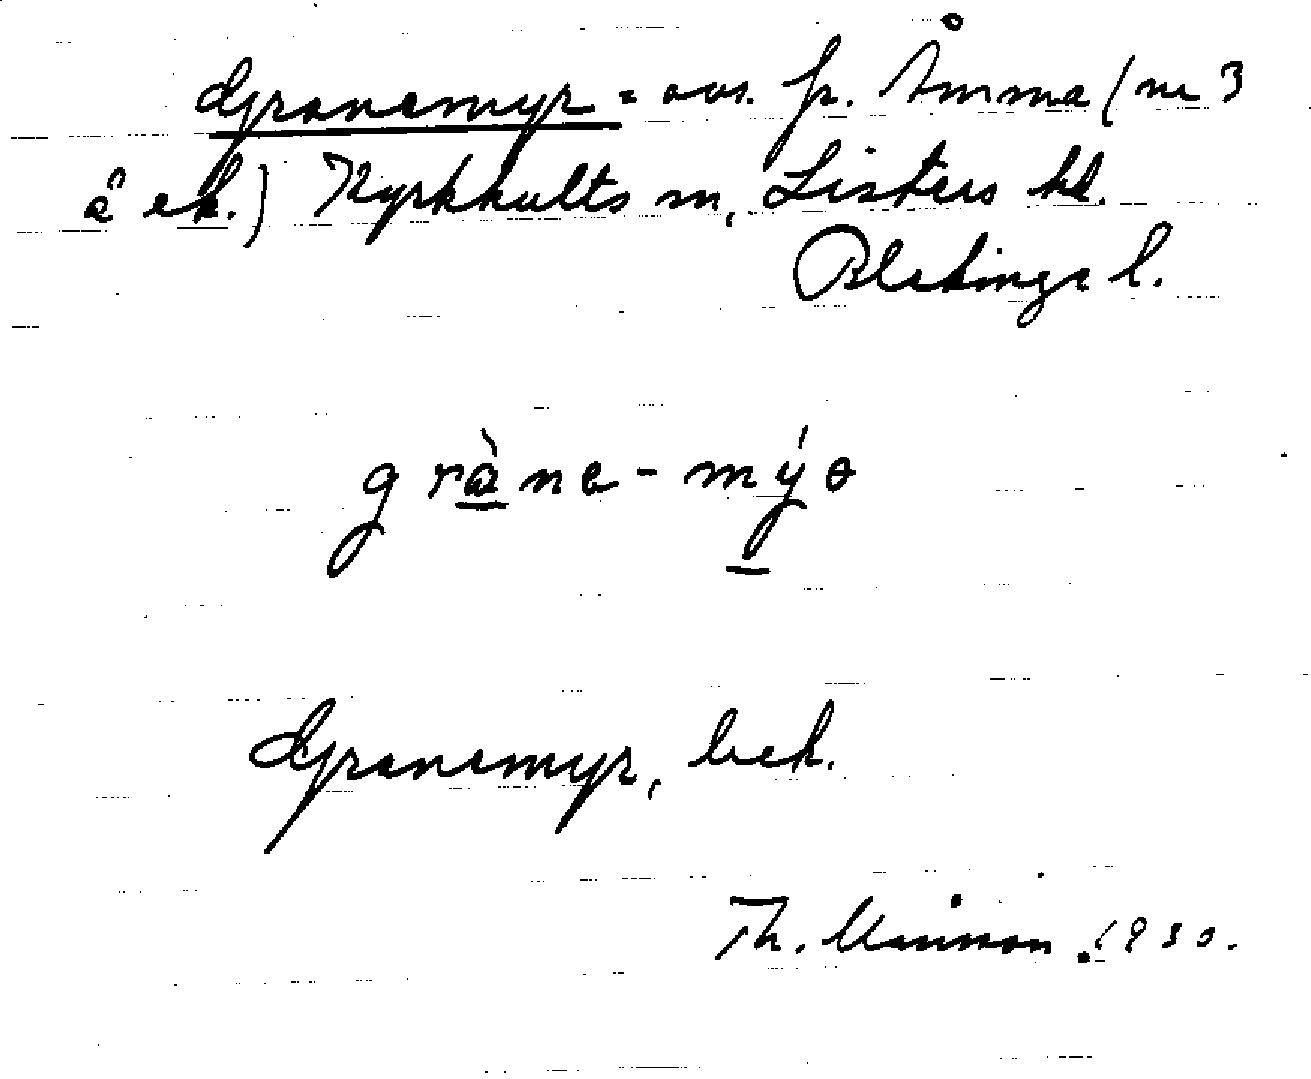 Granemyr = avs. fr. Åmma (nr 3
å ek.) Kyrkhults sn, Listers hd.
Blekinge l.
gràne-mýə
Granemyr, bek.
Th. 1930.